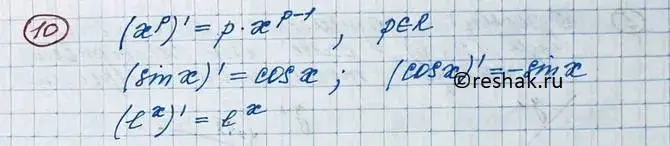 10 (x^p)' = p · x^(p-1), p∈R
(sin x)' = cos x; (cos x)' = -sin x
©reshak.ru
(e^x)' = e^x